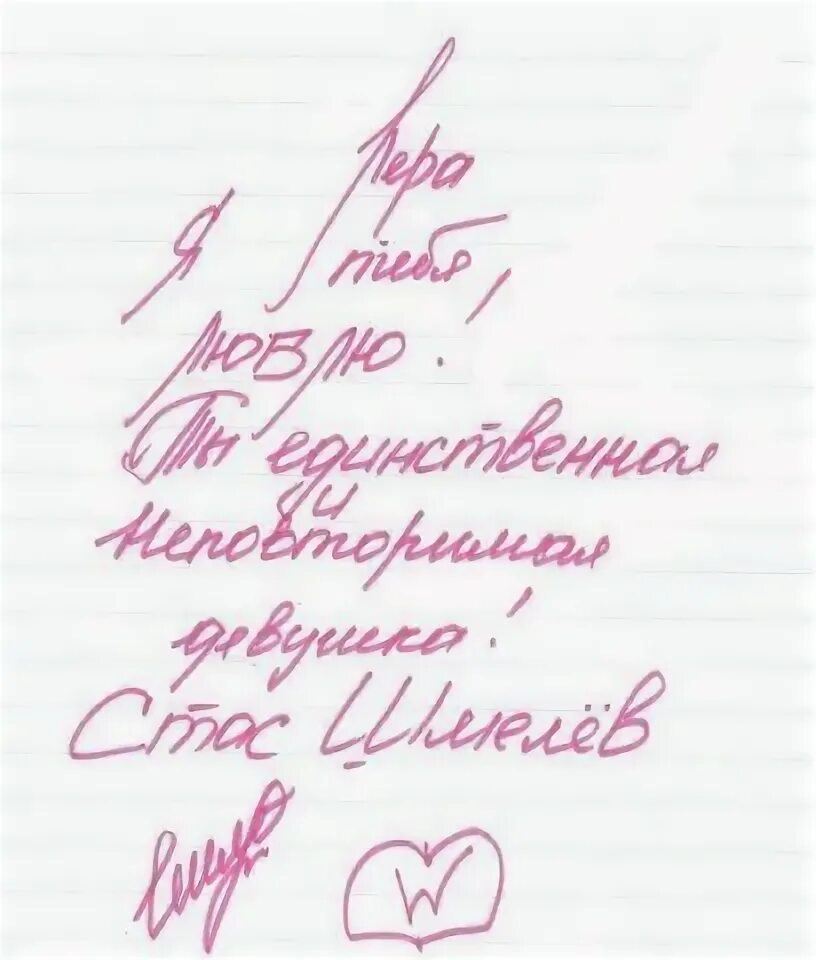 Лера
Я тебя,
люблю!
Ты единственная
и
Неповторимая
девушка!
Стас Шмелёв
W